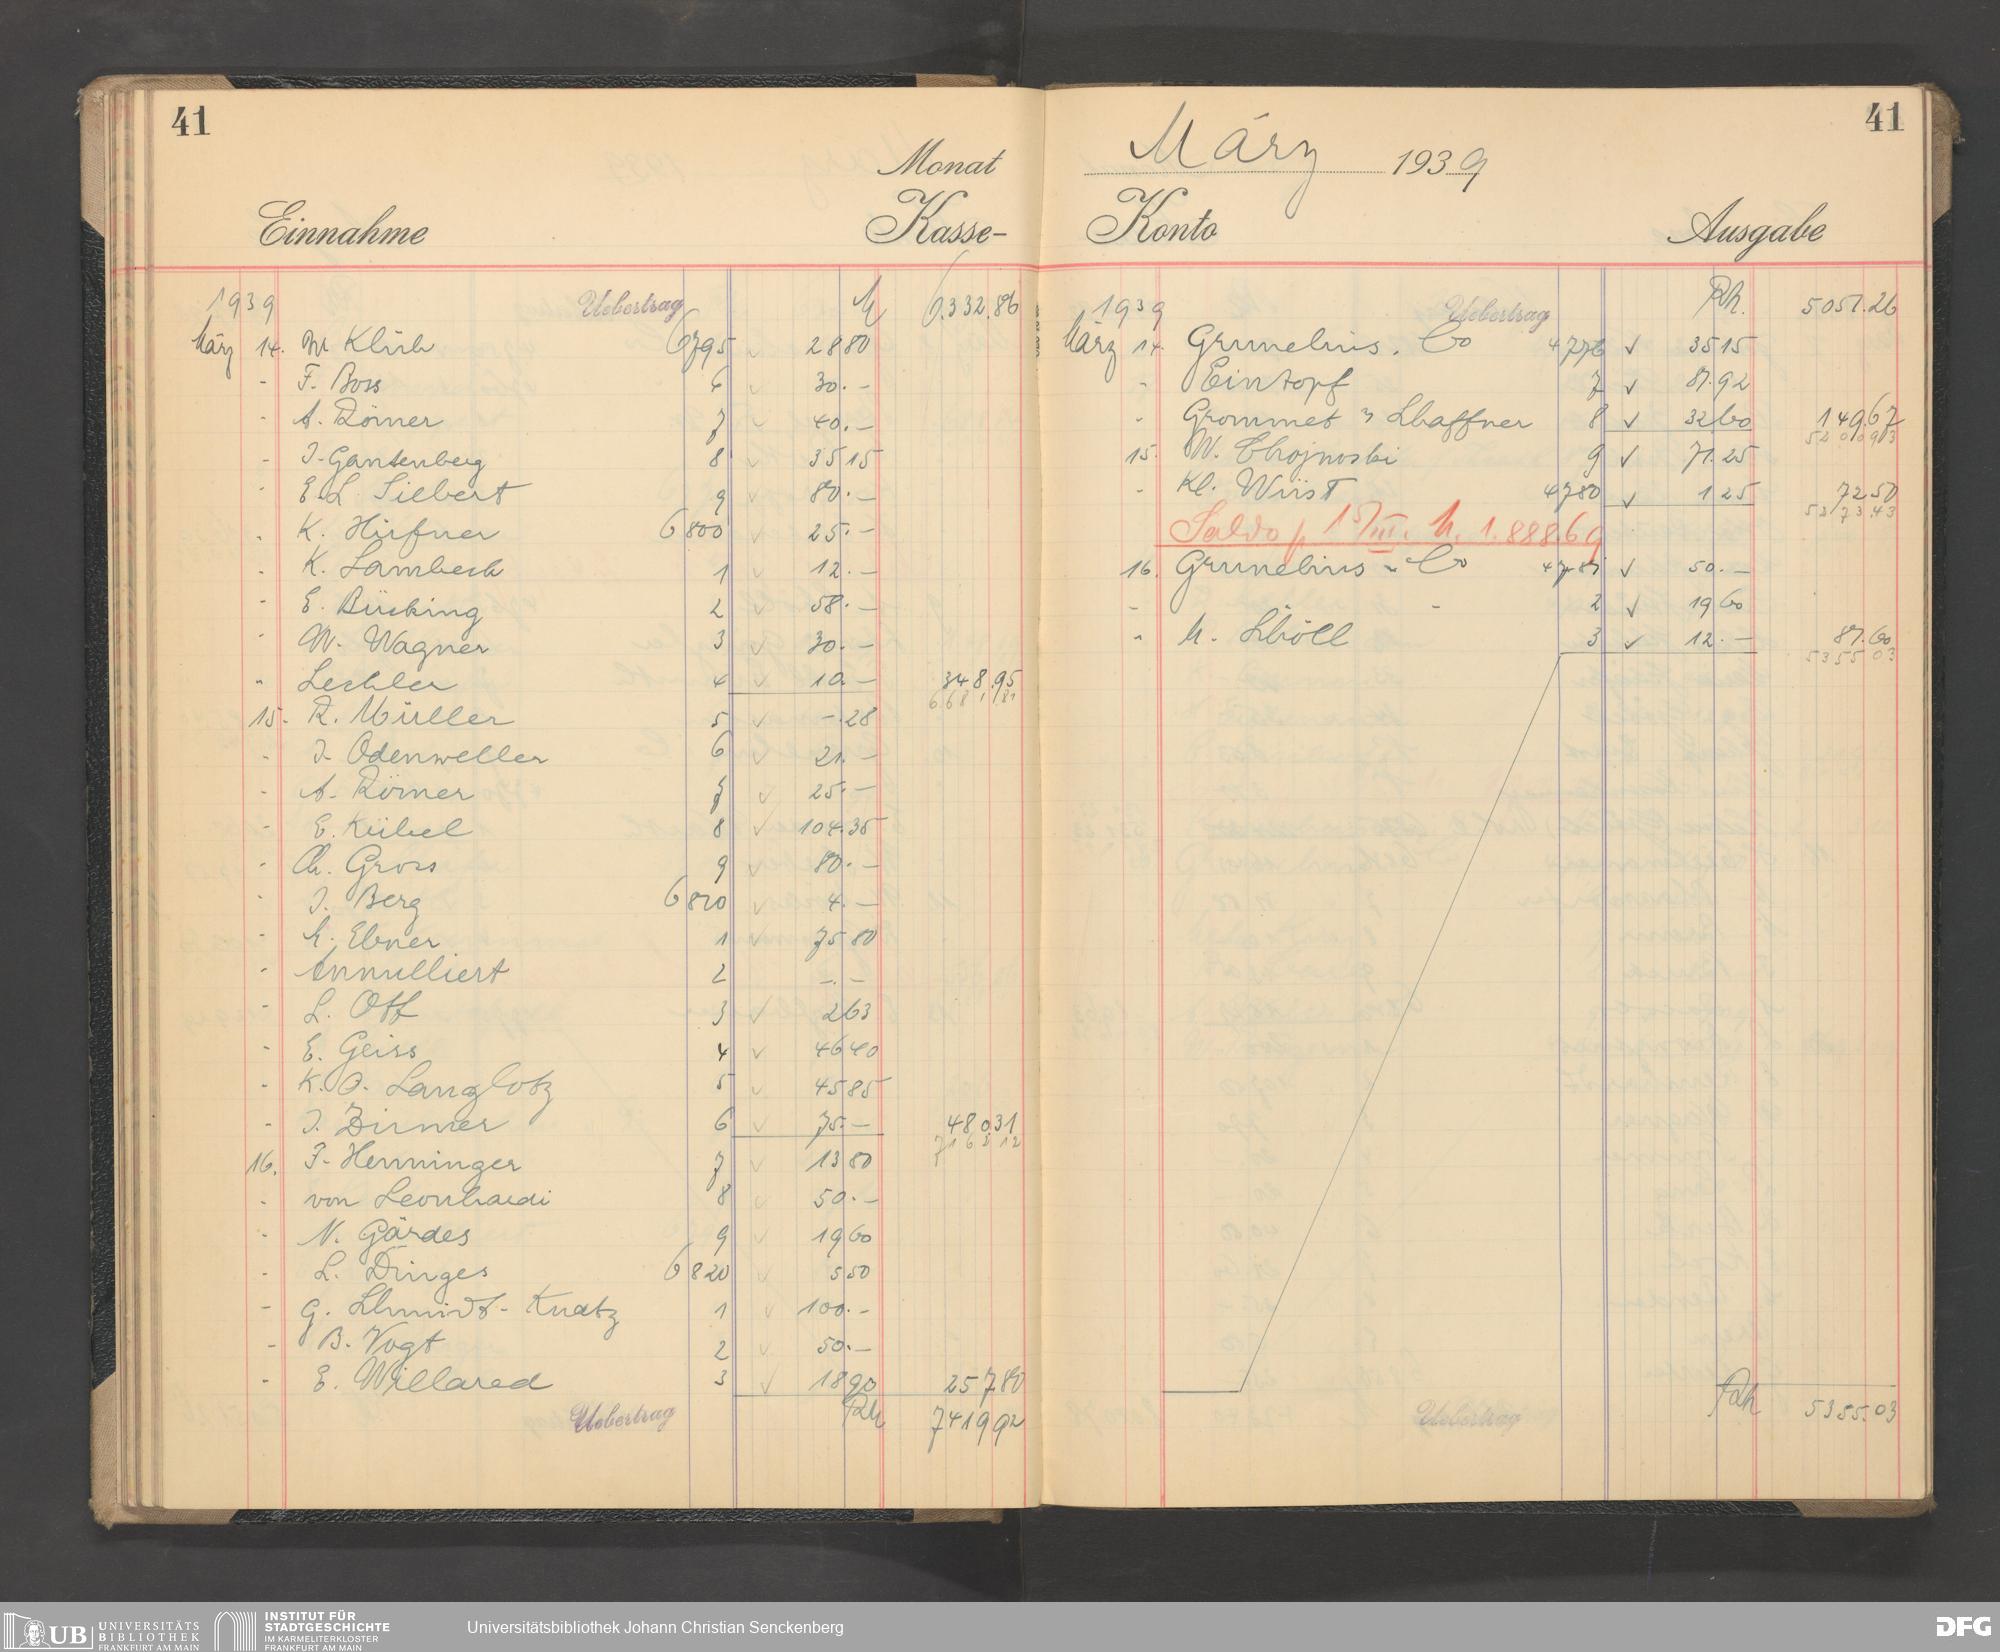 41
Monat
Einnahme Kasse-
1939 Uebertrag M 6.332.86
März 14. W Klüh 6795 ✓ 28 80
- F. Boss 6 ✓ 30.-
- A. Römer 7 ✓ 40.-
- J. Gantenberg 8 ✓ 35 15
- E. L. Siebert 9 ✓ 80.-
- K. 6800 ✓ 25.-
- K. Lambech 1 ✓ 12.-
- E. Bücking 2 ✓ 58.-
- W. Wagner 3 ✓ 30.-
" Lechler 4 ✓ 10.- 348.95
6681.81
15. R. Müller 5 ✓ -.28
- J. Odenweller 6 ✓ 21.-
- A. Römer 7 ✓ 25.-
- E. Kübel 8 ✓ 104.35
- Ch. Gross 9 ✓ 80.-
- J. Berg 6810 ✓ 4.-
- M. Ebner 1 ✓ 75 80
- Annulliert 2 -.-
- L. Ott 3 ✓ 2 63
- E. Geiss 4 ✓ 46 40
- K. O. Langlotz 5 ✓ 45 85
- J. Zirmer 6 ✓ 75.- 480 31
7162 12
16. F. Henninger 7 ✓ 13 80
- von Leonhardi 8 ✓ 50.-
- N. Gärdes 9 ✓ 19 60
- L. Dinges 6820 ✓ 5 50
- G. Schmidt-Knatz 1 ✓ 100.-
- B. Vogt 2 ✓ 50.-
- E. Willared 3 ✓ 18 90 257 80
Uebertrag RM 7419 92
41
März 1939
Konto Ausgabe
1939 Uebertrag RM. 5051.26
März 14. Grunelius & Co 4776 ✓ 35 15
- Eintopf 7 ✓ 81.92
- Grommet & Schaffner 8 ✓ 32 60 149 67
5200 93
15. W. Chojnoski 9 ✓ 71.25
- Kl. Wüst 4780 ✓ 1 25 72 50
5273.43
Saldo p 15/III. M. 1.888.69
16. Grunelius & Co 4781 ✓ 50.-
- - 2 ✓ 19 60
" M. Schöll 3 ✓ 12.- 81.60
5355 03
Uebertrag RM 5355.03
UB UNIVERSITÄTS
BIBLIOTHEK
FRANKFURT AM MAIN
INSTITUT FÜR
STADTGESCHICHTE
IM KARMELITERKLOSTER
FRANKFURT AM MAIN
Universitätsbibliothek Johann Christian Senckenberg
DFG